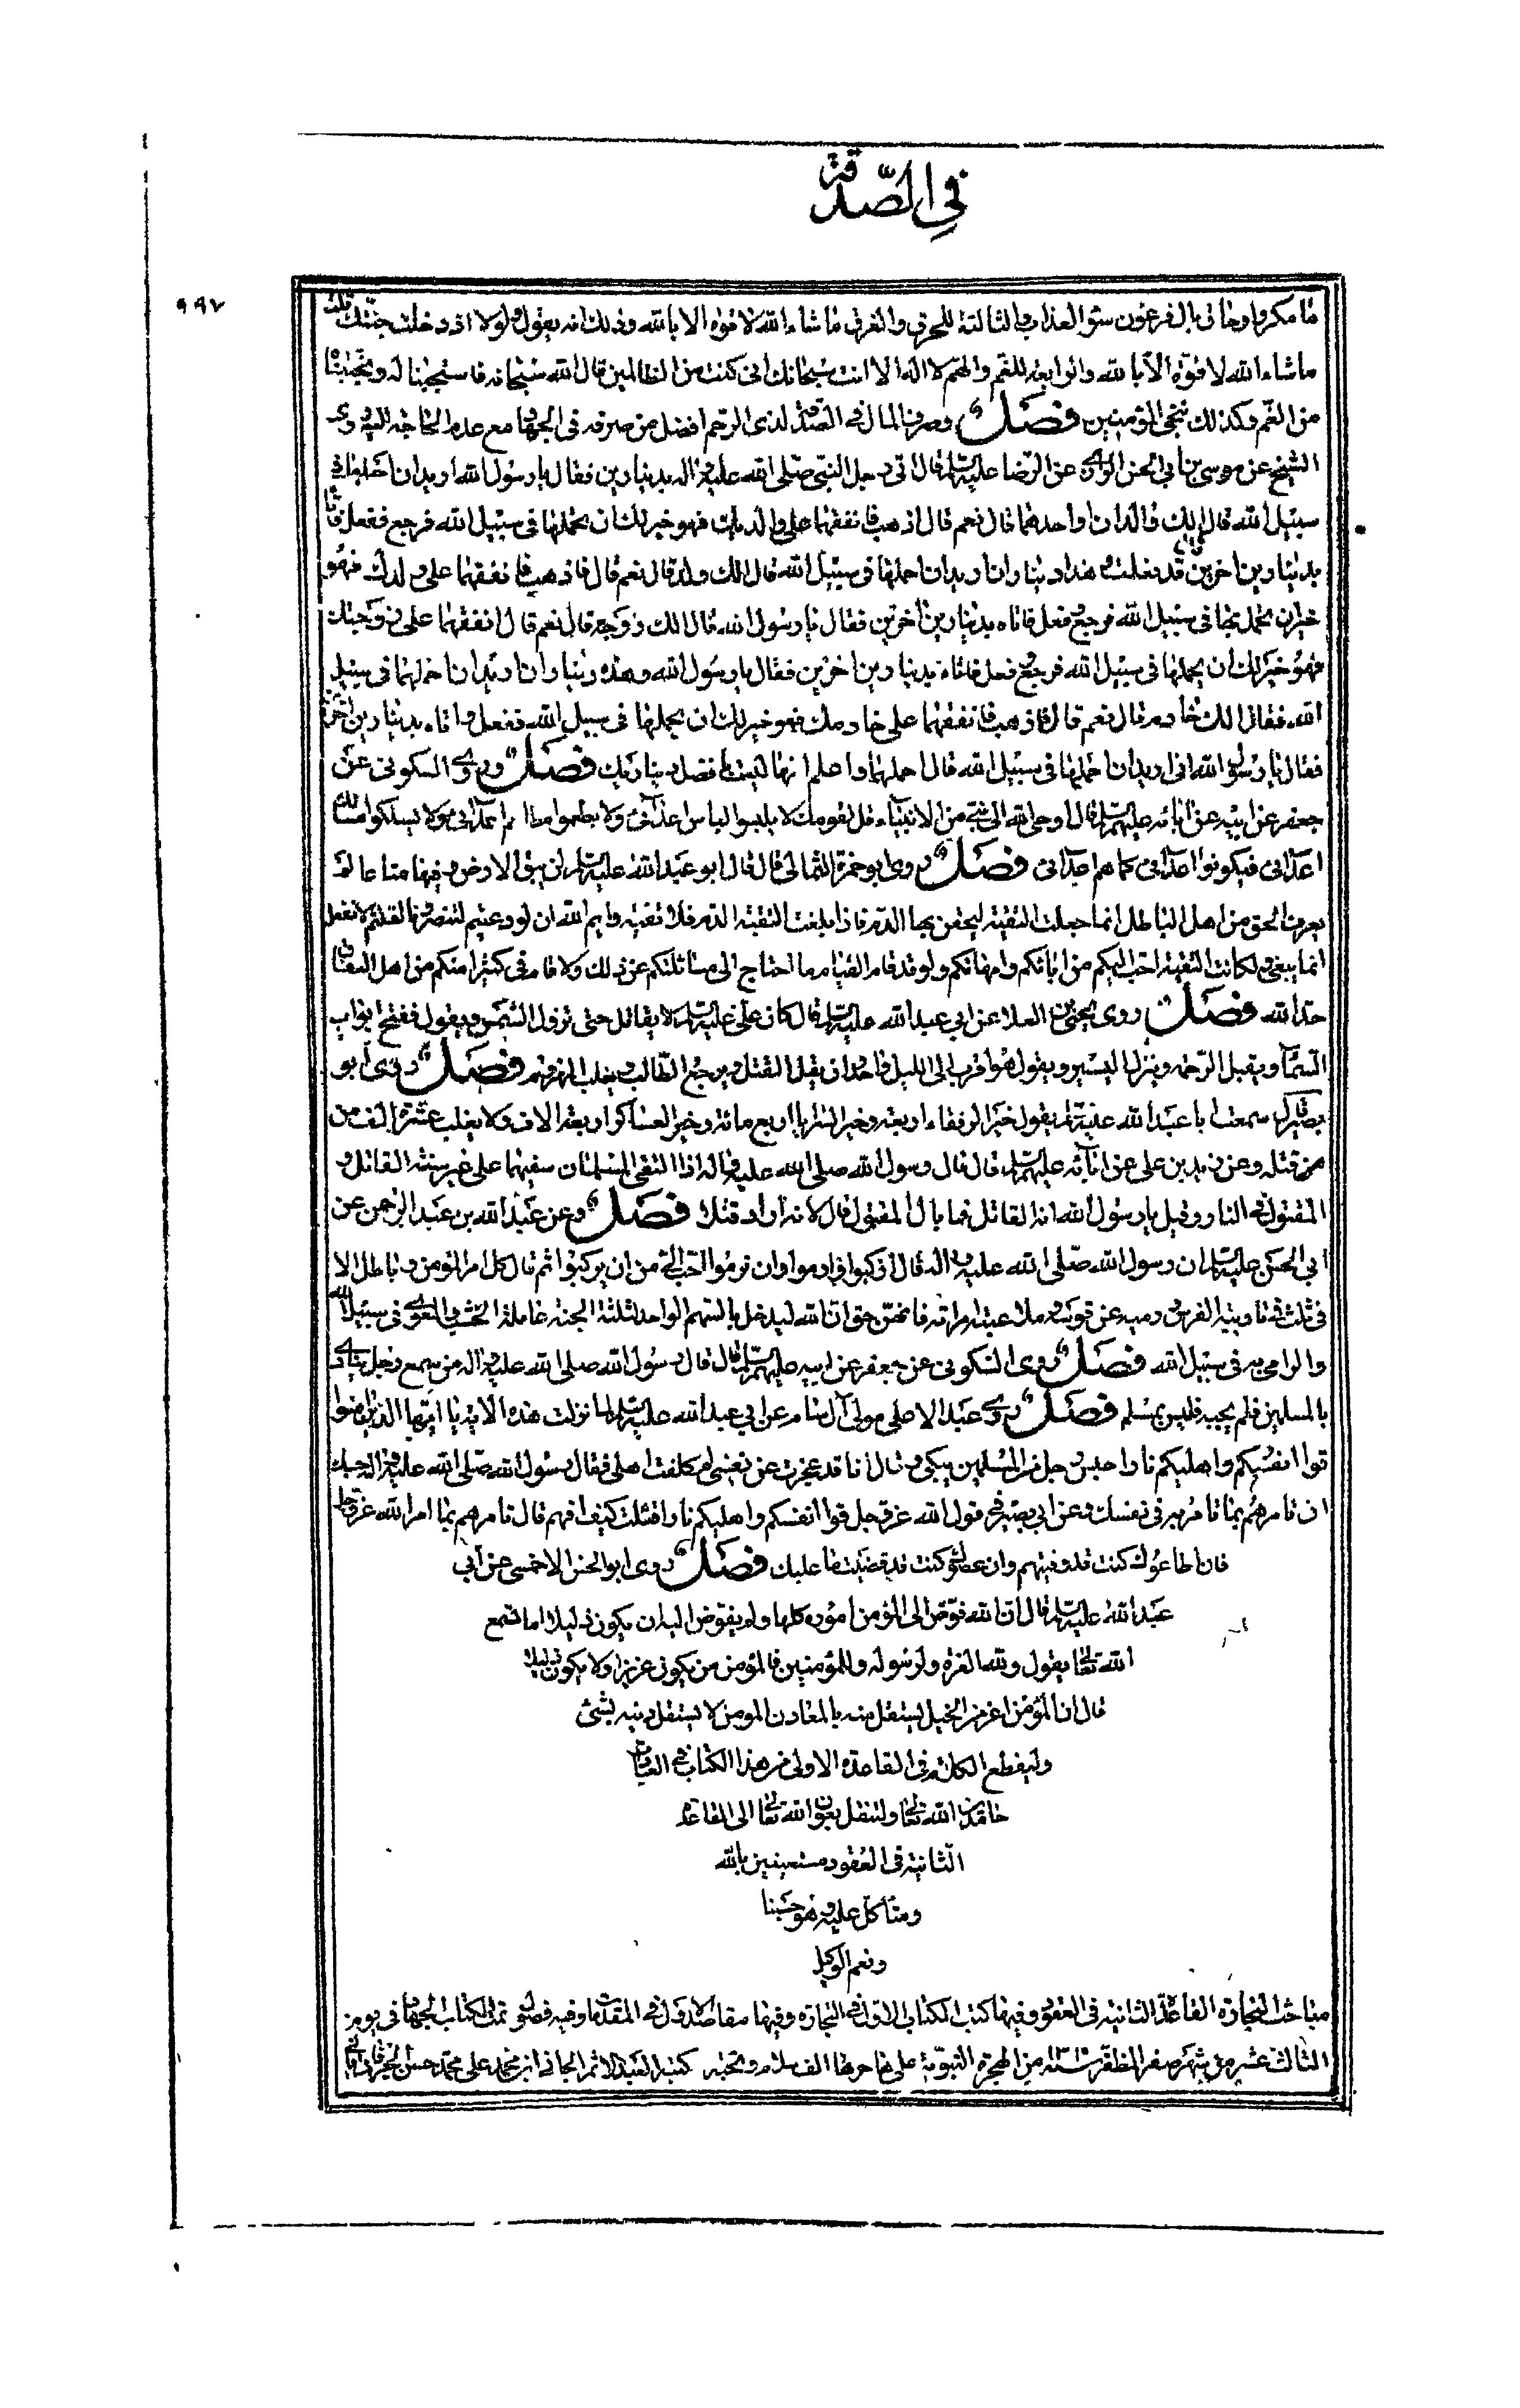 في الصدقة
٩٩٧
ما مكروا وحاق بال فرعون سوء العذاب والثالثة للحرق والغرق ما شاء الله لا قوة الا بالله وذلك انه يقول ولولا اذ دخلت جنتك قلت
ما شاء الله لا قوة الا بالله والرابعة للغم والهم لا اله الا انت سبحانك اني كنت من الظالمين قال الله سبحانه فاستجبنا له ونجيناه
من الغم وكذلك ننجي المؤمنين فصل وصرف المال في الصدقة لذي الرحم افضل من صرفه في الجهاد مع عدم الحاجة اليه روى
الشيخ عن موسى بن ابي الحسن الرازي عن الرضا عليه السلم قال اتى رجل النبي صلى الله عليه واله بدينارين فقال يا رسول الله اريد ان احملهما في
سبيل الله قال الك والدان او احدهما قال نعم قال اذهب فانفقهما على والديك فهو خير لك ان تحملهما في سبيل الله فرجع ففعل فاتاه
بدينارين اخرين قال قد فعلت وهذه ديناران اريد ان احملهما في سبيل الله قال الك ولد قال نعم قال فاذهب فانفقهما على ولدك فهو
خير ان تحمل بهما في سبيل الله فرجع وفعل فاتاه بدينارين اخرين فقال يا رسول الله قال الك زوجة قال نعم قال انفقهما على زوجتك
فهو خير لك ان تحملهما في سبيل الله فرجع وفعل فاتاه بدينارين اخرين فقال يا رسول الله وهذه ديناران اريد ان احملهما في سبيل
الله فقال الك خادم قال نعم قال فاذهب فانفقهما على خادمك فهو خير لك ان تحملهما في سبيل الله ففعل واتاه بدينارين اخرين
فقال يا رسول الله اني اريد ان احملهما في سبيل الله قال احملهما واعلم انهما ليستا بافضل ديناريك فصل وروى السكوني عن
جعفر عن ابيه عن ابائه عليهم السلم قال اوحى الله الى نبي من الانبياء قل لقومك لا يلبسوا لباس اعدائي ولا يطعموا مطاعم اعدائي ولا يسلكوا مسالك
اعدائي فيكونوا اعدائي كما هم اعدائي فصل روى ابو حمزة الثمالي قال قال ابو عبد الله عليه السلم لن يبقى الارض وفيها منا عالم
يعرف الحق من اهل الباطل انما جعلت التقية ليحقن بها الدم فاذا بلغت التقية الدم فلا تقية وايم الله ان لو دعيتم لتنصرونا لقلتم لا نفعل
انما نتقي ولكانت التقية احب اليكم من ابائكم وامهاتكم ولو قد قام القيام ما احتاج الى مسائلتكم عن ذلك ولاقام في كثير منكم من اهل النفاق
حد الله فصل روى يحيى بن العلا عن ابي عبد الله عليه السلم قال كان علي عليه السلم لا يقاتل حتى تزول الشمس ويقول تفتح ابواب
السماء ويقبل الرحمة وينزل النصر ويقول هو اقرب الى الليل واجدر ان يقل القتل ويرجع الطالب ويفلت المنهزم فصل روى ابو
بصير قال سمعت ابا عبد الله عليه السلم يقول خير الرفقاء اربعة وخير السرايا اربع مائة وخير العساكر اربعة الاف ولا يغلب عشرة الف من
من قتله وعن زيد بن علي عن ابائه عليهم السلم قال قال رسول الله صلى الله عليه واله اذا التقى المسلمان بسيفهما على غير سنة القاتل و
المقتول في النار وقيل يا رسول الله انه القاتل فما بال المقتول قال لانه اراد قتلا فصل وعن عبد الله بن عبد الرحمن عن
ابي الحسن عليه السلم ان رسول الله صلى الله عليه واله قال اركبوا وارموا وان ترموا احب الي من ان يركبوا ثم قال كل امر المؤمن باطل الا
في ثلث في تاديبه الفرس ورميه عن قوسه وملاعبته امراته فانهن حق ان الله ليدخل بالسهم الواحد لثلثة الجنة عاملة الخشب والمقوي في سبيل الله
والرامي به في سبيل الله فصل روى السكوني عن جعفر عن ابيه عليهم السلم قال قال رسول الله صلى الله عليه واله من سمع رجلا ينادي
بالمسلمين فلم يجبه فليس بمسلم فصل روى عبد الاعلى مولى آل سام عن ابي عبد الله عليه السلم لما نزلت هذه الاية يا ايها الذين امنوا
قوا انفسكم واهليكم نارا جلس رجل من المسلمين يبكي وقال انا قد عجزت عن نفسي لم كلفت اهلي فقال رسول الله صلى الله عليه واله حسبك
ان تامرهم بما تامر به في نفسك وعن ابي بصير في قول الله عز وجل قوا انفسكم واهليكم نارا قلت كيف اقيهم قال تامرهم بما امر الله عز وجل
فان اطاعوك كنت قد وقيتهم وان عصوك كنت قد قضيت ما عليك فصل روى ابو الحسن الاحمسي عن ابي
عبد الله عليه السلم قال ان الله فوض الى المؤمن اموره كلها ولم يفوض اليه ان يكون ذليلا اما تسمع
الله تعالى يقول ولله العزة ولرسوله وللمؤمنين فالمؤمن من يكون عزيزا ولا يكون ذليلا
قال ان المؤمن اعز من الجبل يستقل منه بالمعاول والمومن لا يستقل دينه بشئ
وليقطع الكلام في القاعدة الاولى من هذا الكتاب في العبادات
حامدين الله تعالى ولننتقل بعون الله تعالى الى القاعدة
الثانية في العقود مستعينين بالله
ومتاكل عليه وهو حسبنا
ونعم الوكيل
مباحث التجارة القاعدة الثانية في العقود وفيها كتب الكتاب الاول في التجارة وفيها مقاصد الاول في المقدمات وفيه فصول تمت الكتاب الجهاد في يوم
الثالث عشر من شهر صفر المظفر سنة من الهجرة النبوية على هاجرها الف سلام وتحية كتبه العبد الاثم الجاني ابن محمد علي محمد حسن